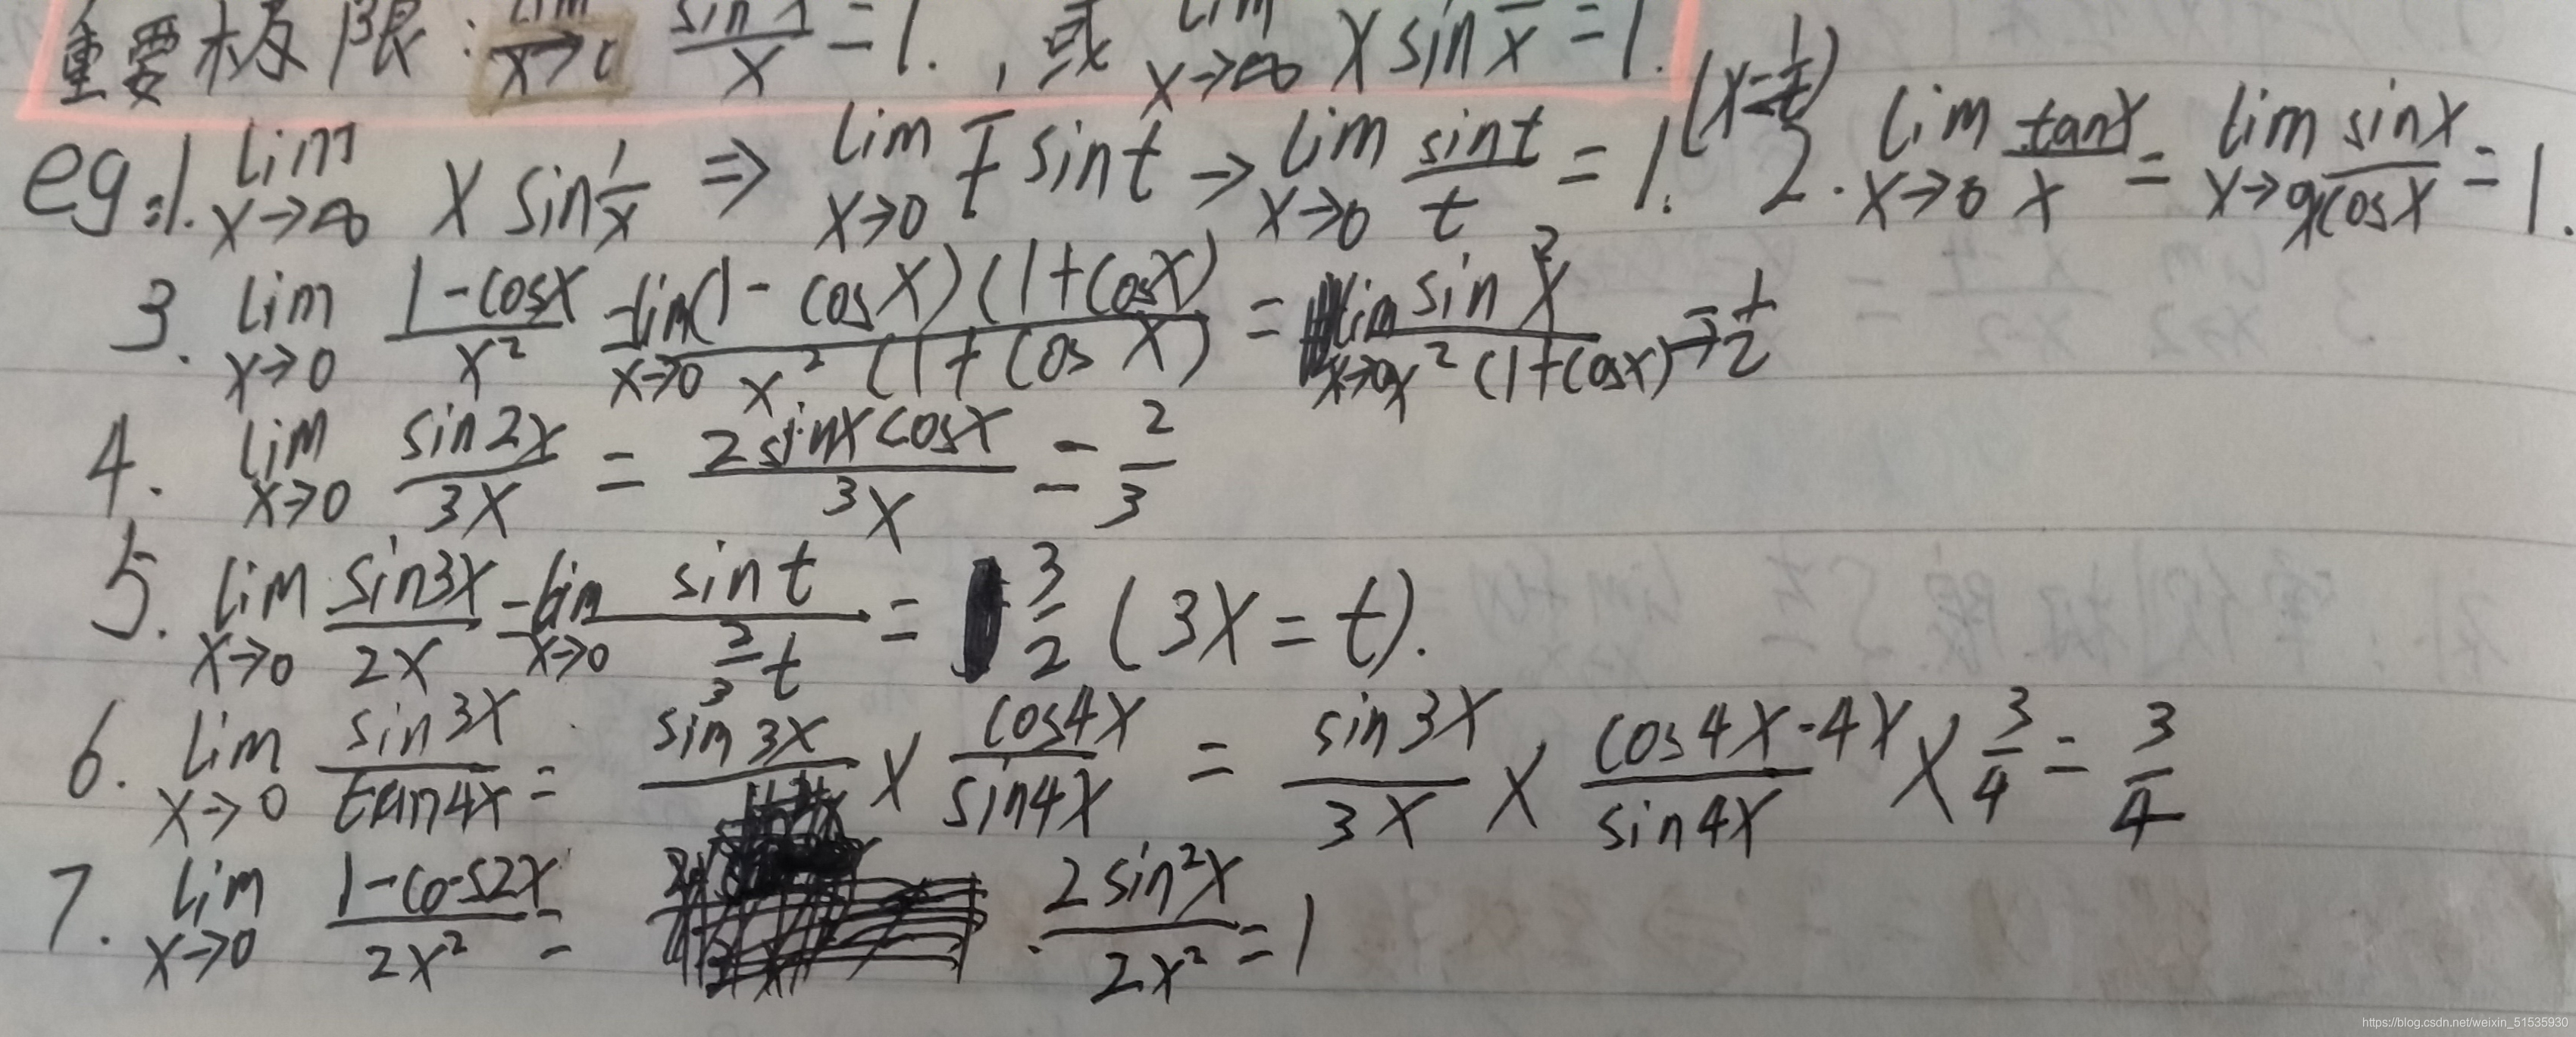 重要极限: lim x→0 sinx/x = 1. , 或 lim x→∞ x sin 1/x = 1.
eg:1. lim x→∞ x sin 1/x ⇒ lim x→0 1/t sint → lim x→0 sint/t = 1. (x=1/t) 2. lim x→0 tanx/x = lim x→0 sinx/xcosx = 1.
3. lim x→0 1-cosx/x² = lim x→0 (1-cosx)(1+cosx)/x²(1+cosx) = lim x→0 sin²x/x²(1+cosx) = 1/2
4. lim x→0 sin2x/3x = 2sinxcosx/3x = 2/3
5. lim x→0 sin3x/2x = lim x→0 sint/(2/3 t) = 3/2 (3x=t).
6. lim x→0 sin3x/tan4x = sin3x × cos4x/sin4x = sin3x/3x × cos4x·4x/sin4x × 3/4 = 3/4
7. lim x→0 1-cos2x/2x² = 2sin²x/2x² = 1
https://blog.csdn.net/weixin_51535930